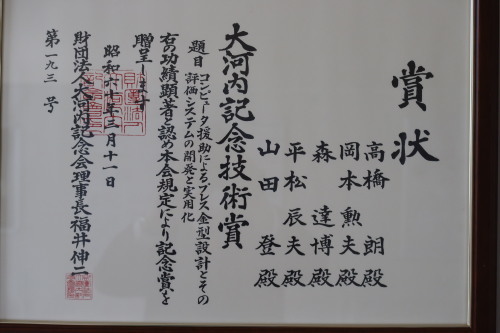 賞状
高橋 朗殿
岡本勲夫殿
森 達博殿
平松辰夫殿
山田 登殿
大河内記念技術賞
題目 コンピュータ援助によるプレス金型設計とその
評価システムの開発と実用化
右の功績顕著と認め本会規定により記念賞を
贈呈します
昭和六十年三月十一日
財団法人大河内記念会理事長福井伸二
第一九三号